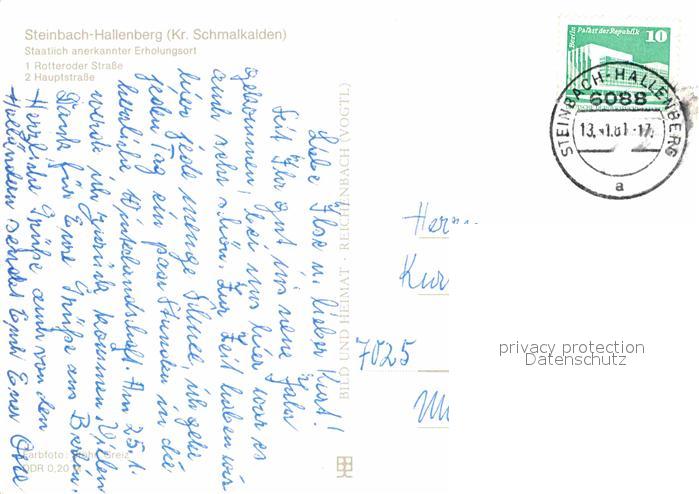 Steinbach-Hallenberg (Kr. Schmalkalden)
Staatlich anerkannter Erholungsort
1 Rotteroder Straße
2 Hauptstraße
Liebe Ilse u. lieber Kurt!
Seid Ihr gut ins neue Jahr
gekommen, bei uns hier war es
auch sehr schön. Zur Zeit haben wir
hier jede menge Schnee, ich gehe
jeden Tag ein paar Stunden in die
herrliche Winterlandschaft. Am 25.1.
werde ich zurück kommen. Vielen
Dank für Eure Grüße aus Berlin.
Herzliche Grüße auch von den
sendet Euch Euer
BILD UND HEIMAT · REICHENBACH (VOGTL)
Berlin Palast der Republik 10
DDR
STEINBACH-HALLENBERG
6088
13.-1.81-17
a
Herrn
Kur
7025
privacy protection
Datenschutz
Farbfoto: Greiz
DDR 0,20 M